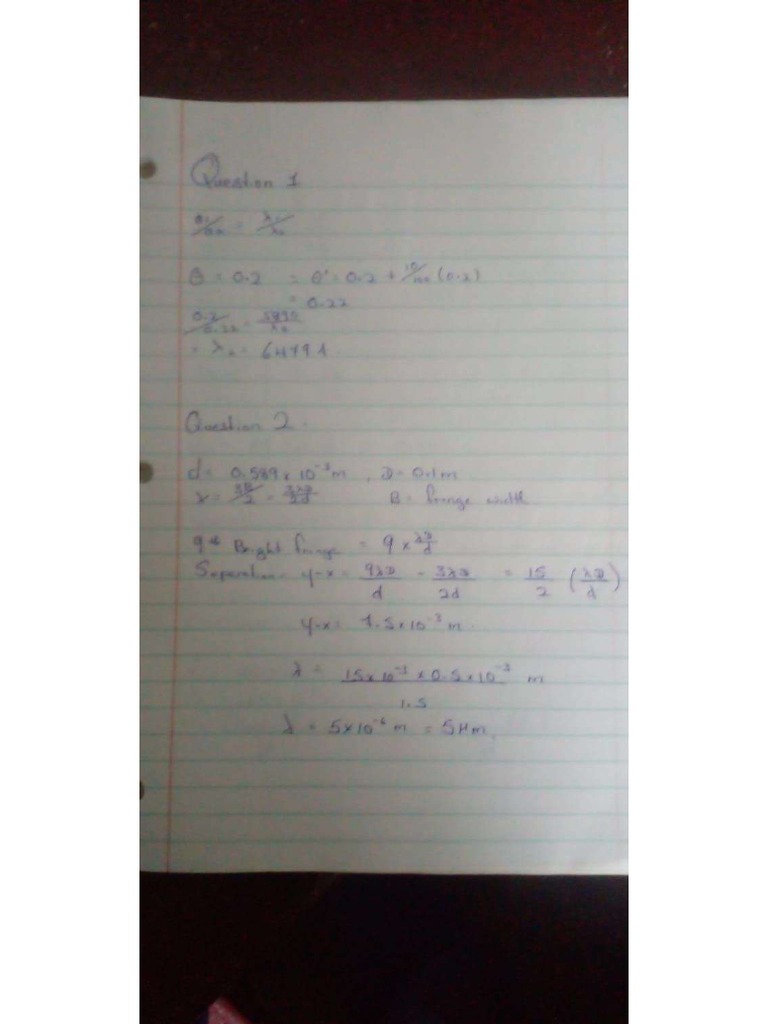 Question 1
θ₁/θ₂ = λ₁/λ₂
θ = 0.2 = θ' = 0.2 + 10/100 (0.2)
= 0.22
0.2/0.22 = 5890/λ₂
= λ₂ = 6479 Å
Question 2
d = 0.589 x 10⁻³ m , D = 0.1m
x = 3B/2 = 3λD/2d B = fringe width
9th Bright fringe = 9 x λD/d
Separation = y-x = 9λD/d - 3λD/2d = 15/2 (λD/d)
y-x = 7.5x10⁻³ m
λ = 15x10⁻³ x 0.5x10⁻³/1.5 m
λ = 5x10⁻⁶ m = 5μm